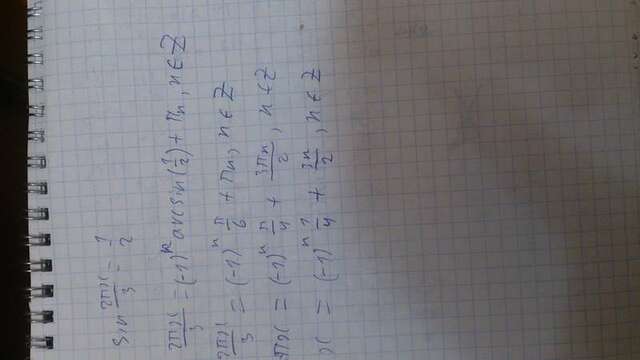 sin 2πx/3 = 1/2
2πx/3 = (-1)^n arcsin(1/2) + πn, n∈Z
2πx/3 = (-1)^n π/6 + πn, n∈Z
πx = (-1)^n π/4 + 3πn/2, n∈Z
x = (-1)^n 1/4 + 3n/2, n∈Z